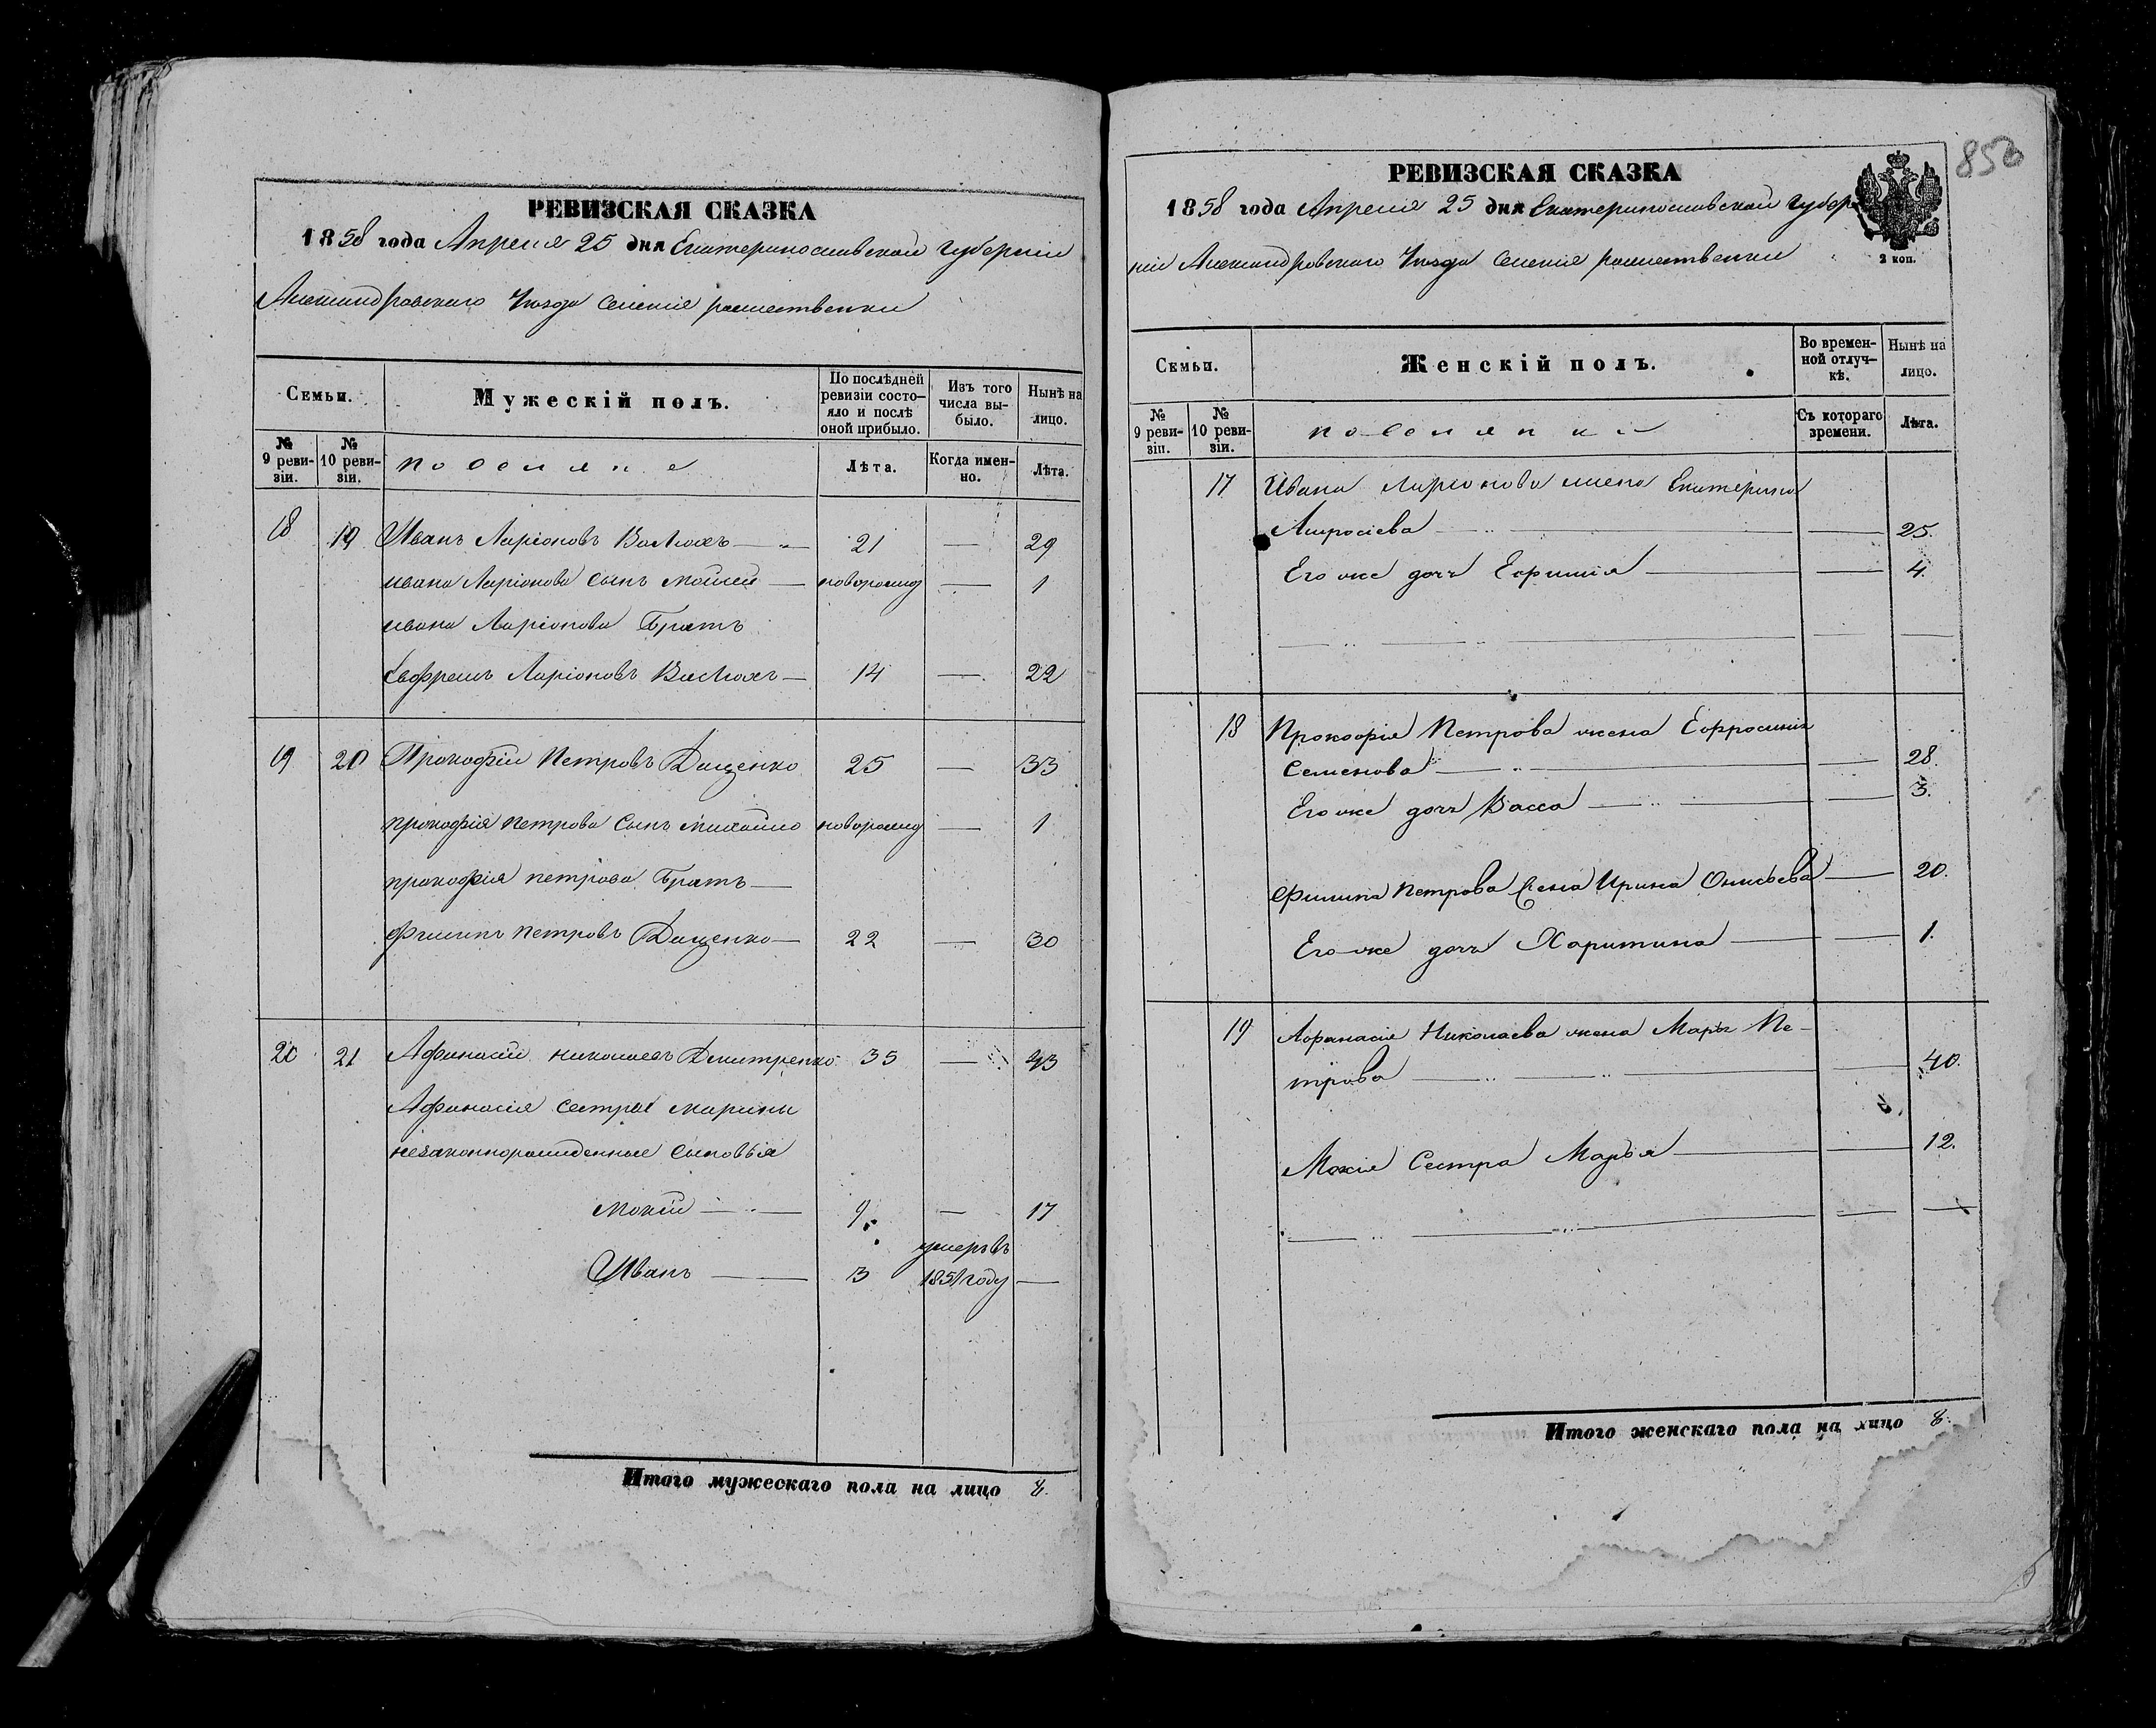 РЕВИЗСКАЯ СКАЗКА
1858 года Апреля 25 дня Екатеринославской губернии
Александровскаго Уезда селенія рожественки
Семьи.
Мужескій полъ.
По послѣдней ревизіи состояло и послѣ оной прибыло.
Изъ того числа выбыло.
Нынѣ на лицо.
№ 9 ревизіи.
№ 10 ревизіи.
поселяне
Лѣта.
Когда именно.
Лѣта.
18 19 Иванъ Ларіоновъ Валюхъ — 21 — 29
ивана Ларіонова сынъ Мойсей — новорожд — 1
ивана Ларіонова Братъ
Евфремъ Ларіоновъ Валюхъ — 14 — 22
19 20 Прокофій Петровъ Дащенко 25 — 33
прокофія петрова сынъ михайло новорожд — 1
прокофія петрова Братъ —
филипъ петровъ Дащенко — 22 — 30
20 21 Афанасій николаевъ Дмитренко 35 — 43
Афанасія сестры марины
незаконнорожденные сыновья
мокій — 9 — 17
умеръ въ
Иванъ — 3 1851 году —
Итого мужескаго пола на лицо 8.
850
РЕВИЗСКАЯ СКАЗКА
1858 года Апреля 25 дня Екатеринославской губер
ніи Александровскаго Уезда селенія рожественки
2 коп.
Семьи.
Женскій полъ.
Во временной отлучкѣ.
Нынѣ на лицо.
№ 9 ревизіи.
№ 10 ревизіи.
поселянки
Съ котораго времени.
Лѣта.
17 Ивана Ларіонова жена Екатерина
— — 25.
Его же дочь — — 4.
18 Прокофія Петрова жена Ефросинія
Семенова — — 28.
Его же дочь Васса — — 3.
Филипа Петрова жена Ирина Онисьева — 20.
Его же дочь Харитина — — 1.
19 Афанасія Николаева жена Марья Пе-
трова — — 40.
Мокія Сестра Марья — — 12.
Итого женскаго пола на лицо 8.